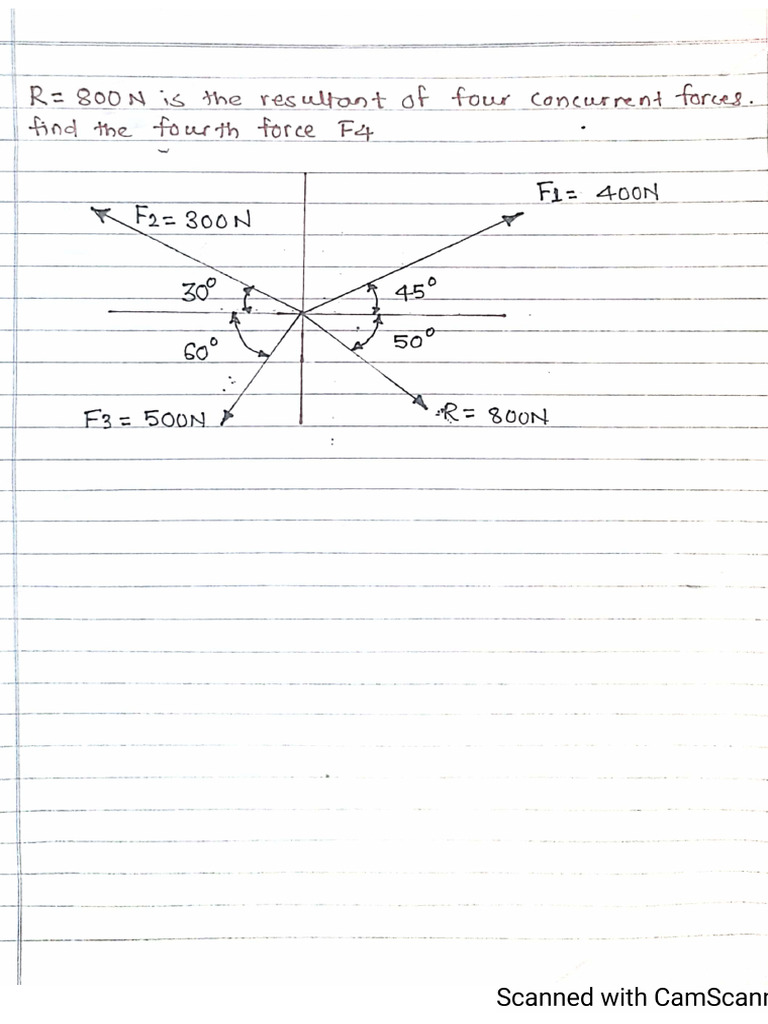 R= 800N is the resultant of four concurrent forces.
find the fourth force F4
F1= 400N
F2= 300N
30° 45°
60° 50°
F3= 500N R= 800N
Scanned with CamScann